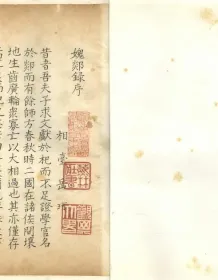 媿郯錄序
相臺岳珂
昔者吾夫子求文獻於杞而不足證學官名
於郯而有餘師方春秋時二國在諸侯間壤
地生齒廣輪衆寡亡以大相過也其亦僅存